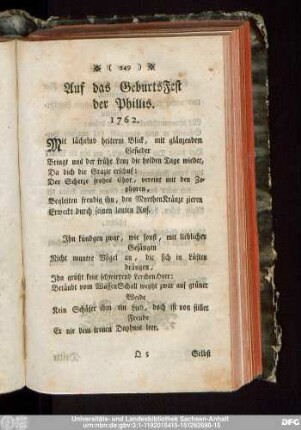 ( 249 )
Auf das GeburtsFest
der Phillis.
1762.
Mit lächelnd heiterm Blick, mit glänzendem
Gefieder
Bringt uns der frühe Lenz die holden Tage wieder,
Da dich die Grazie erschuf:
Der Scherze frohes Chor, vereint mit den Ze-
phyren,
Begleiten freudig ihn, den MyrthenKränze zieren
Erweckt durch seinen lauten Ruf.
Ihn kündgen zwar, wie sonst, mit lieblichen
Gesängen
Nicht muntre Vögel an, die sich in Lüften
drängen,
Ihn grüßt kein schwirrend LerchenHeer:
Betäubt vom WaffenSchall weyht zwar auf grüner
Weide
Kein Schäfer ihm ein Lied, doch ist von stiller
Freude
Er nie dem treuen Daphnis leer.
Q 5 Selbst
Universitäts- und Landesbibliothek Sachsen-Anhalt
urn:nbn:de:gbv:3:1-1192015415-151293590-15
DFG